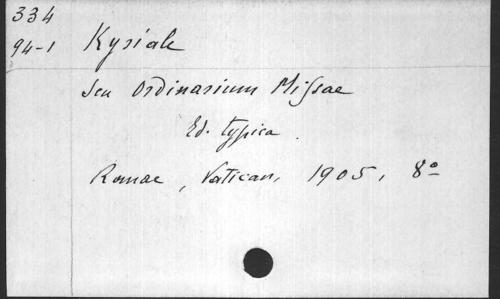 334
94-1 Kyriale
seu Ordinarium Missae
Ed. typica.
Romae, Vatican, 1905, 8º